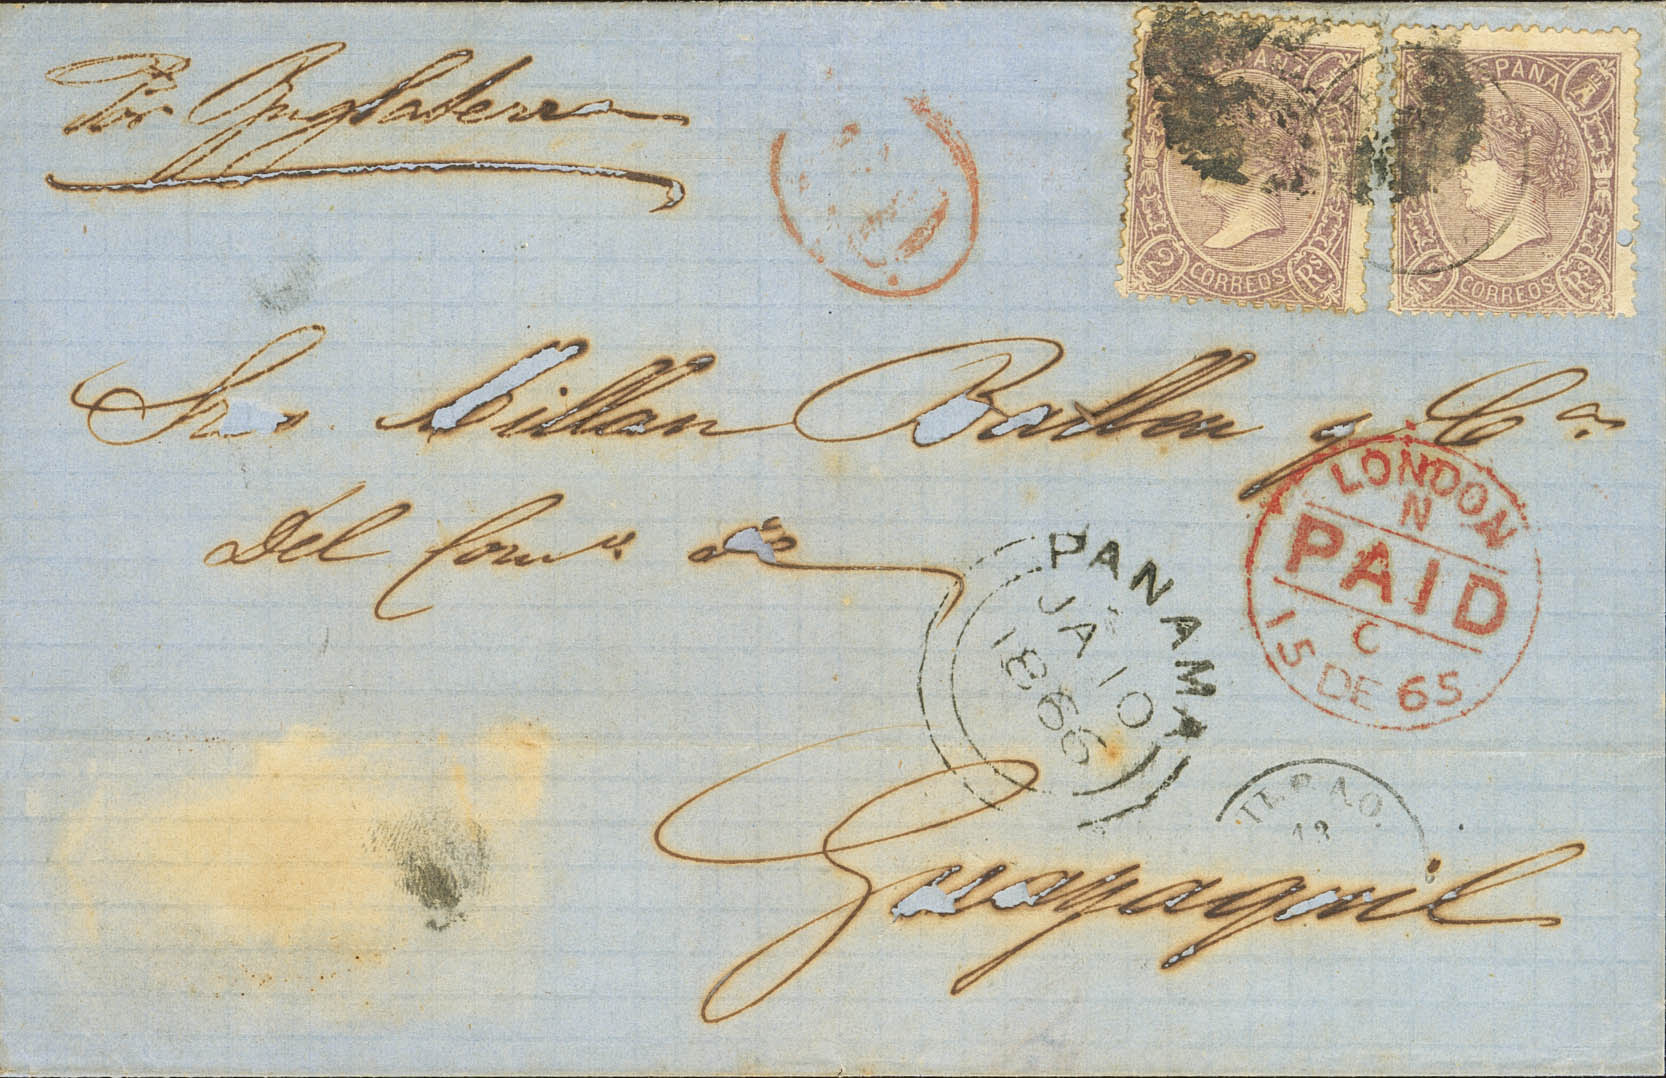 Por Inglaterra
ESPAÑA
2 CORREOS Rs
ESPANA
2 CORREOS Rs
Sres Millan Ballen y Ca
Del Comо de
LONDON
N
PAID
C
15 DE 65
PANAMA
JA 10
1866
BILBAO.
13
Guayaquil